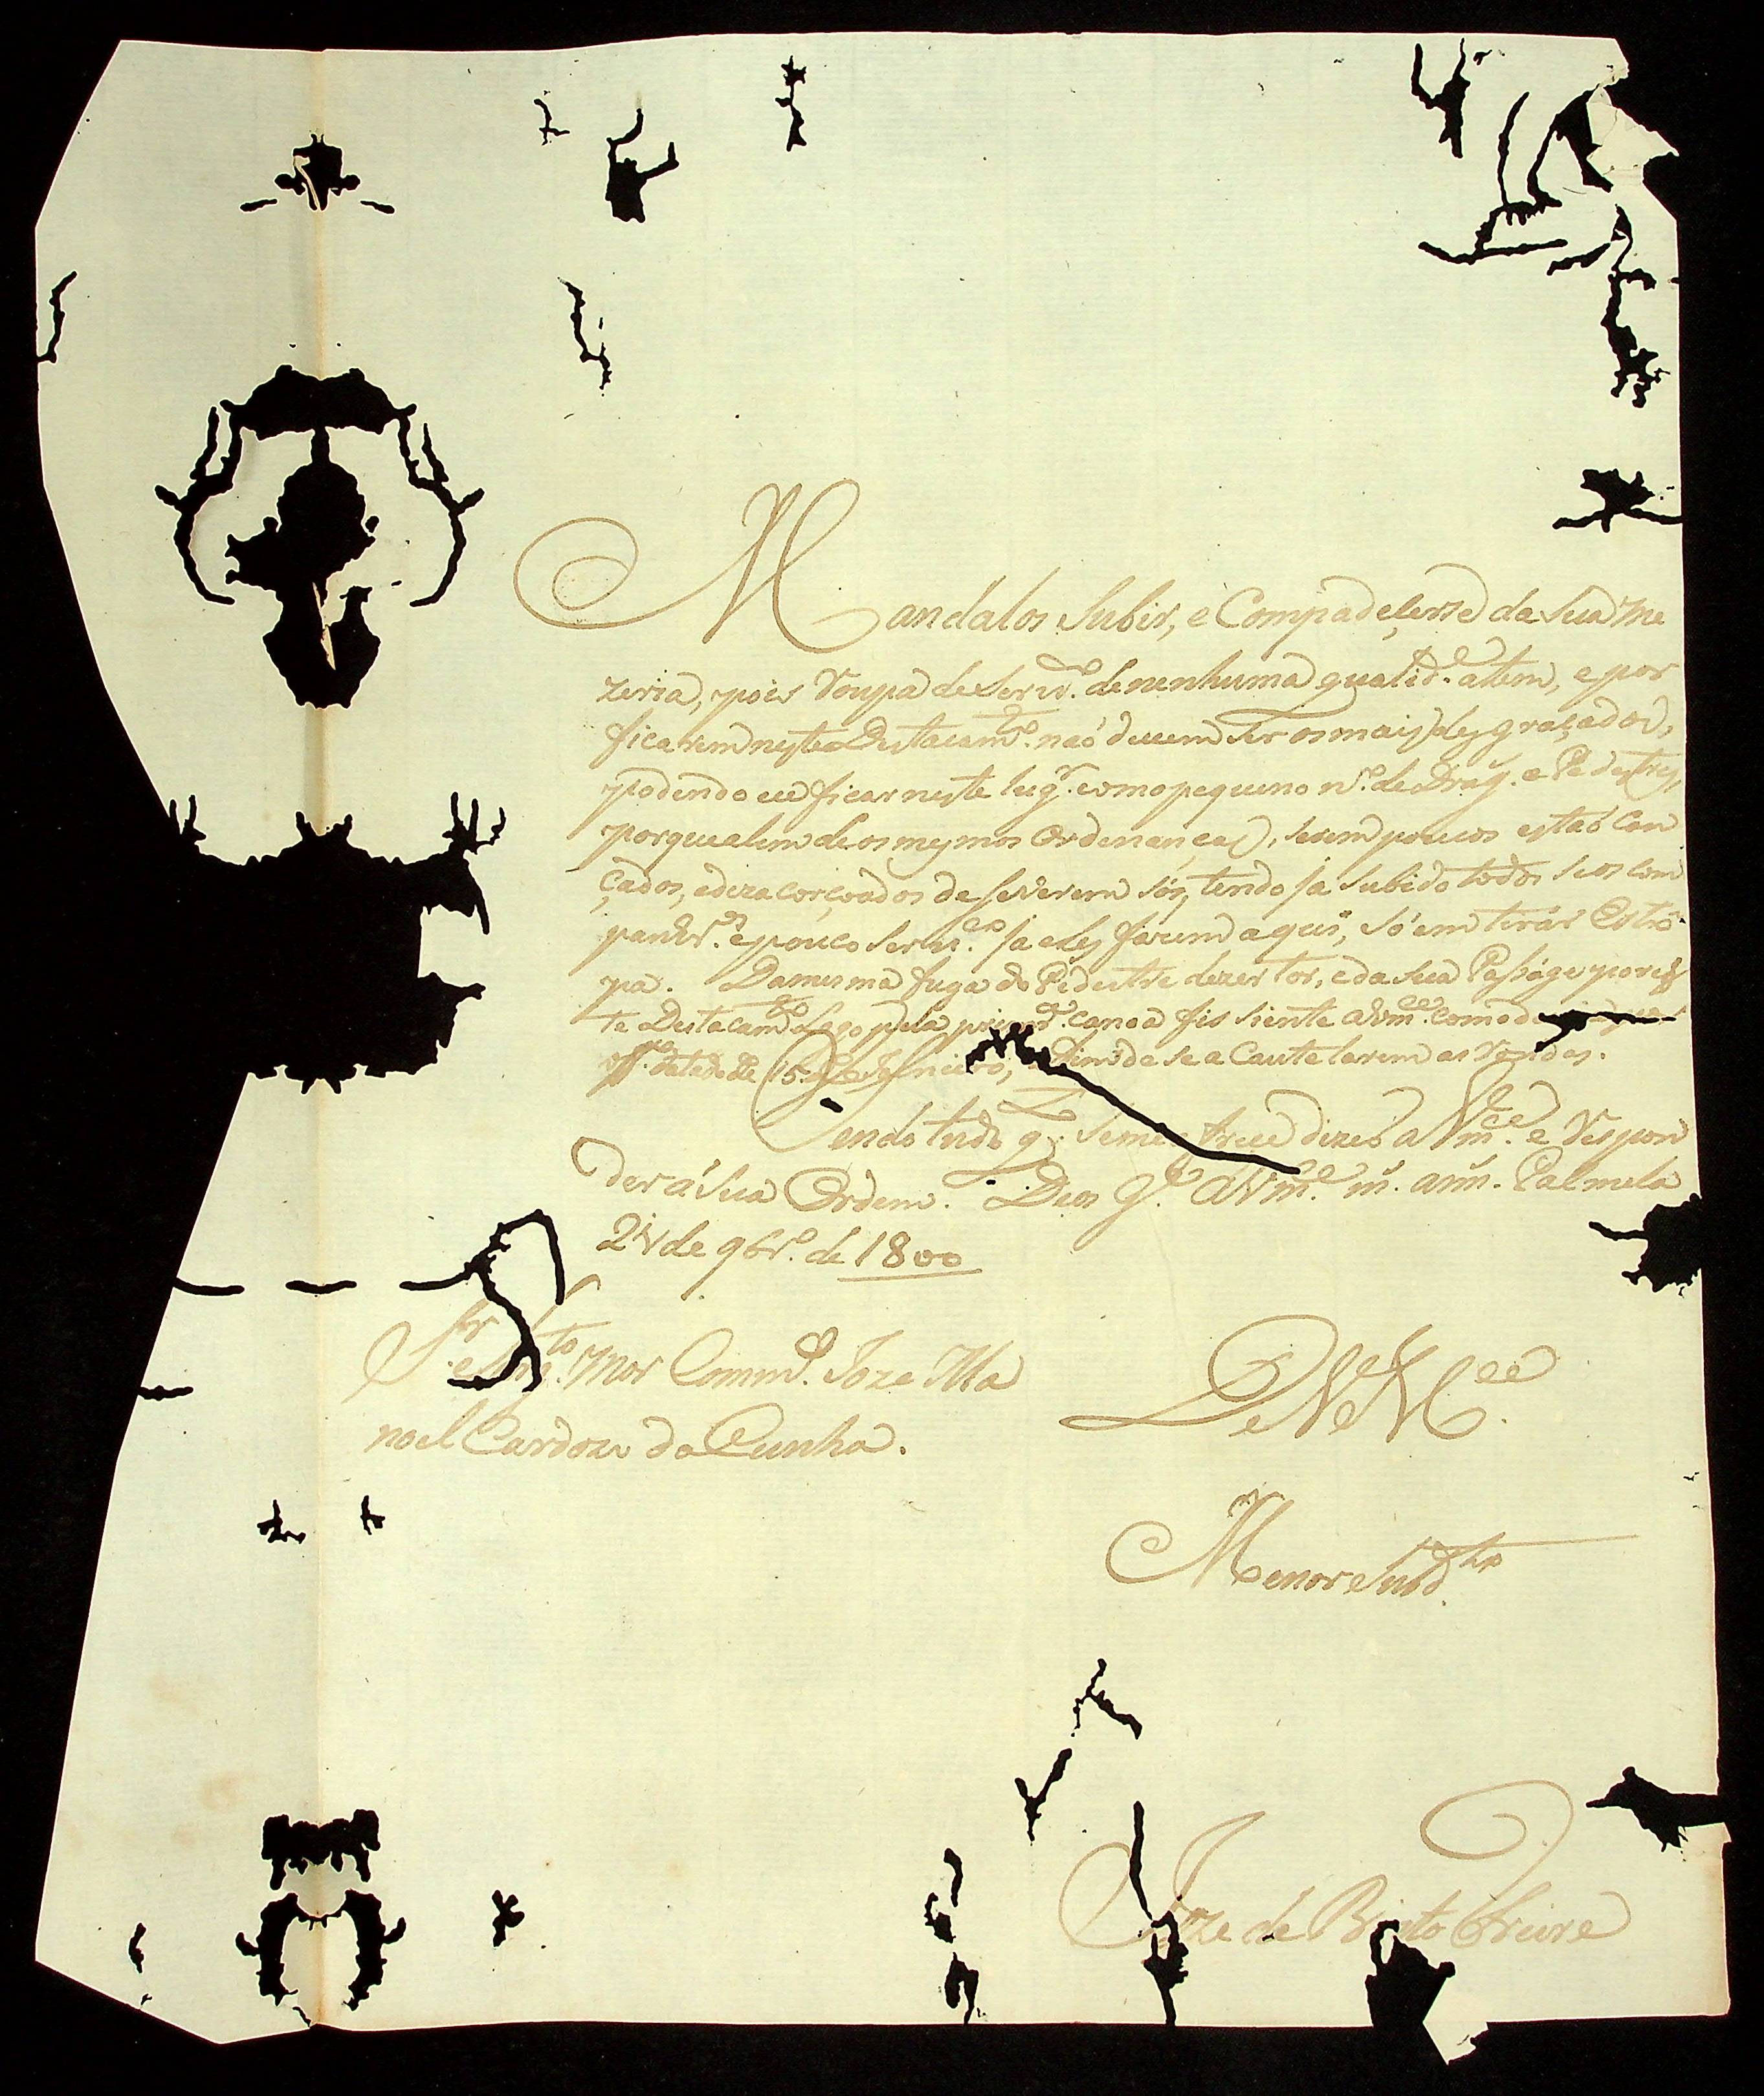 Mandalos Subir, e Compadeçerse da Sua Me
zeria, pois Roupa de Serv.º de nenhuma qualid.e atem, e por
ficarem neste Destacam.to naõ devem Ser os mais desgraçados,
podendo eu ficar neste lug.r com o pequeno n.º de Drag. e Pedestres,
porque alem de os mesmos Ordenanças, serem poucos estaõ Can
çados, e dezacorçoados de Se verem sós, tendo ja subido todos Seos Com
panhr.os e pouco Serv.ço ja eles fazem aqui, só em tirár Estrô
pa. Da mesma fuga do Pedestre dezertor, e da Sua Passáge por es
te Destacam.to Logo pela canoa fis siente a Vm.ce como
off.º datado de 15 de se a Cautelarem as
Sendo tudo q. Seme dizer a Vm.ce e Respon
der á Sua Ordem. Deos G.e a Vm.ce m. ann. Palmela
24 de 9br.º de 1800
S.r Mor Comm.de Joze Ma
noel Cardozo da Cunha.
De V. M.ce
Menor Subd.to
Joze de Brito Freire